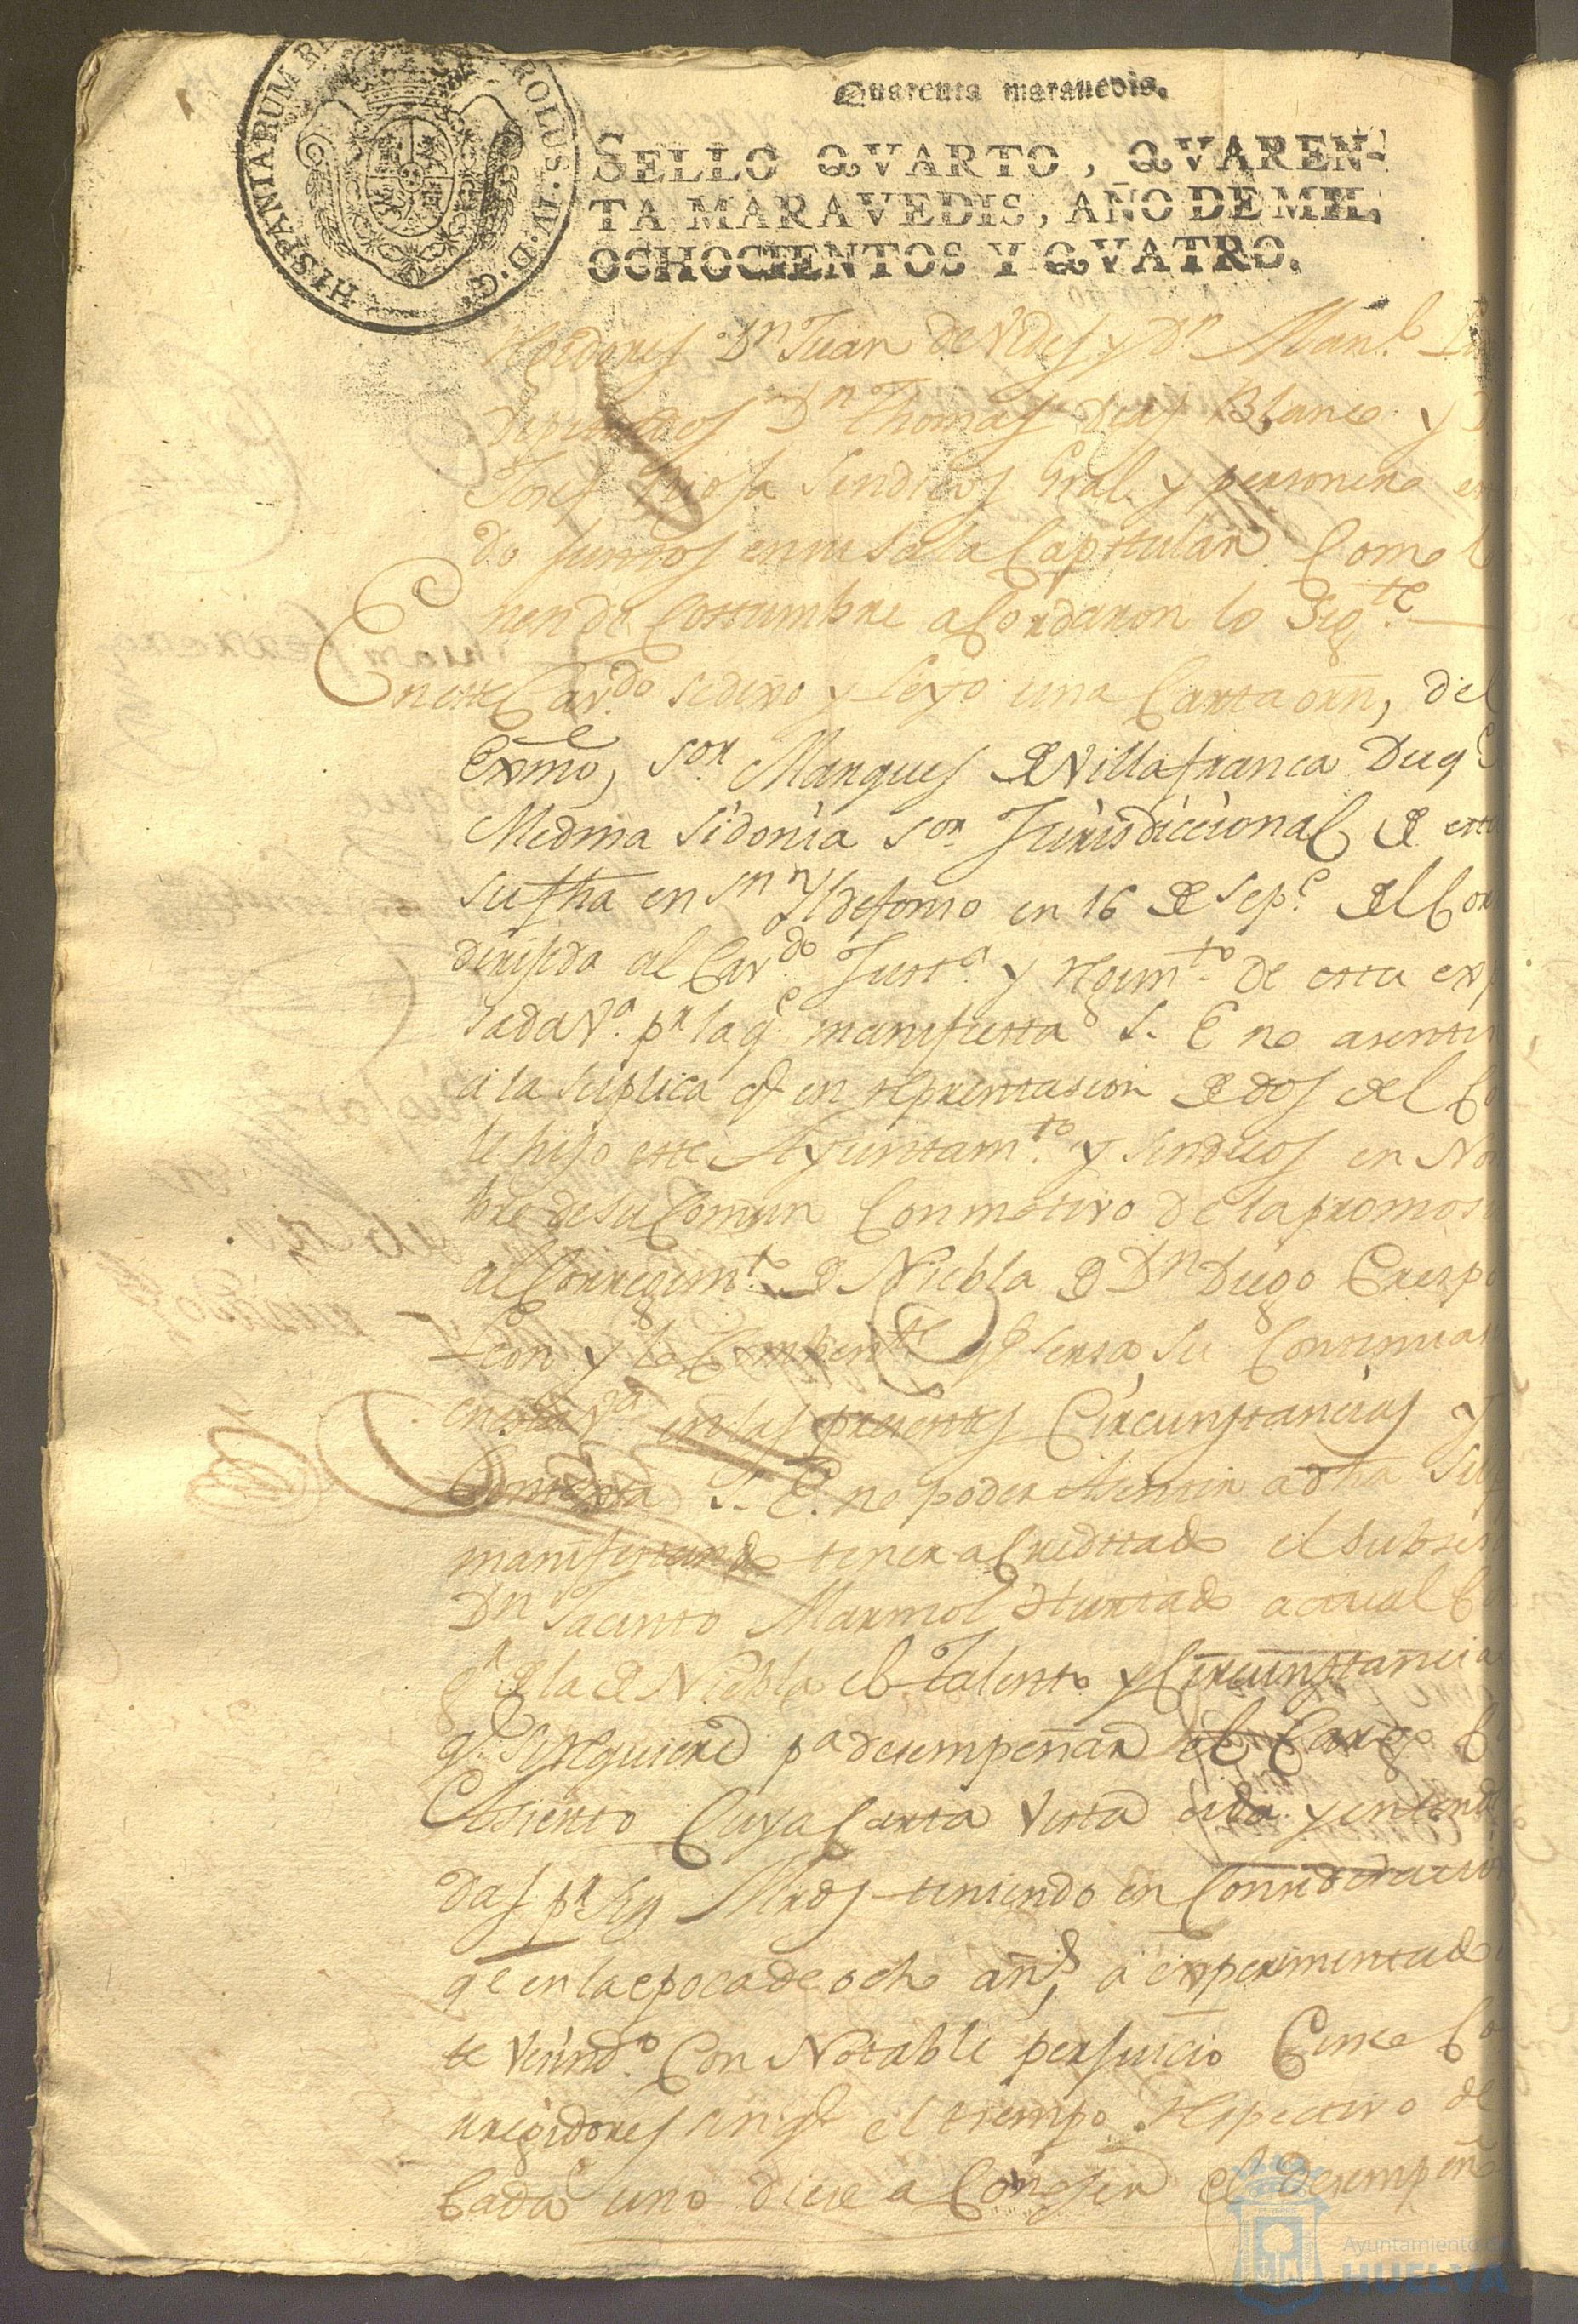 Quarenta maravedis.
HISPANIARUM RE ROLUS. IV. D. G.
SELLO QVARTO, QVAREN-
TA MARAVEDIS, AÑO DE MIL
OCHOCIENTOS Y QVATRO.
Dn Juan de Vides y Dn Man.l
Diputados Dn Thomas Blanco y D
Josef Sindicos Gral y personero
do juntos en su sala Capitular Como
nen de Costumbre aCordaron lo Sigte
En este Cavdo se dixo y Leyo una Carta orn, del
Exmo, Sor Marques de Villafranca Duqe
Medina Sidonia Sor Jurisdiccional de esta
su fha en Sn Yldefonso en 16 de Sepe del Cor
dirijida al Cavdo Justa y Regimto de esta exp
sada Va pr la qe manifiesta S. E no asentir
a la suplica qe en representacion de dos del Co
le hiso este Ayuntamto y Sindicos en No
bre de su Comun Con motivo de la promosi
al Corregimto de Niebla de Dn Diego Crespo
Leon y lo qe seria su Continuas
en esta Va en las presentes Circunstancias y
Contexta S. E. no poder Asentir a dha Sup
manifestando tener aCreditado el
Dn Jacinto Marmol Hurtado actual Co
de la de Niebla el Talento y Circunstancia
qe se requiere pa desempeñar el Cargo
Asiento Cuya Carta vista oida y entendi
das pr Sus Mrds teniendo en Consideracion
qe en la epoca de ocho añs, a experimentado
te Vecindo Con Notable perjuicio Cinco Co
rregidores sin qe el tiempo respectivo de
Cada uno diese a Conoser el desempeñ
Ayuntamiento de
HUELVA